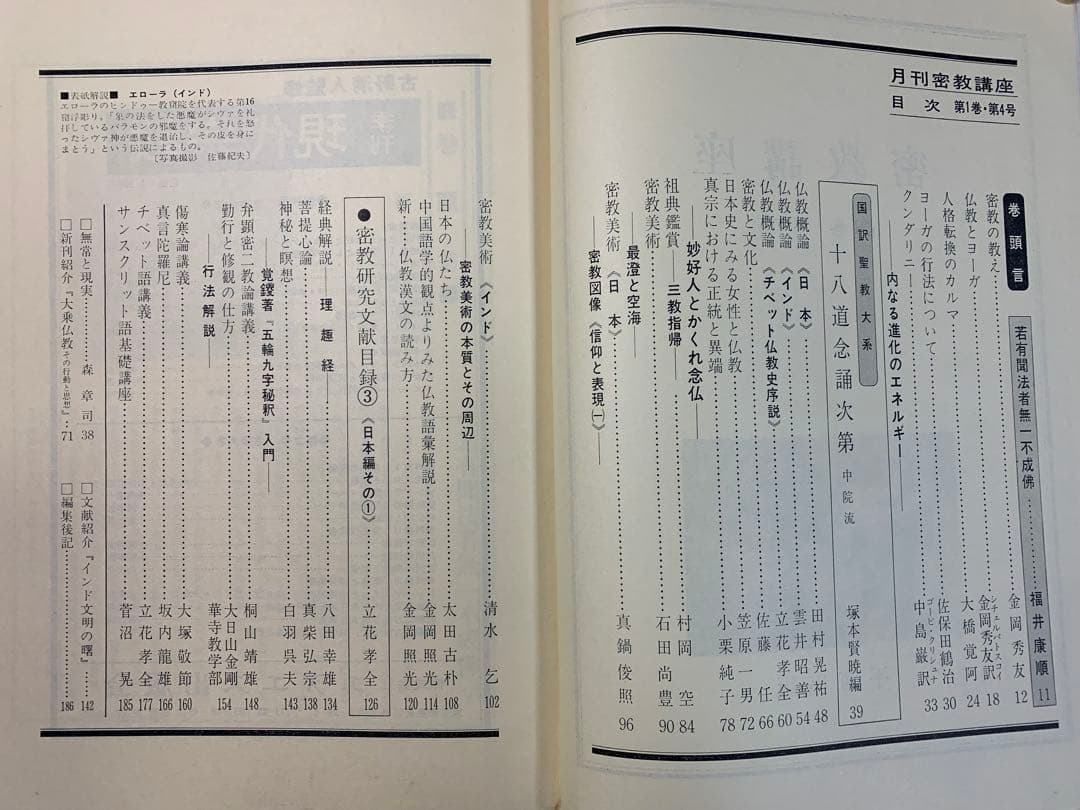 月刊密教講座
目次 第1巻・第4号
巻頭言 若有聞法者無一不成佛…………福井康順 11
密教の教え…………金岡秀友 12
仏教とヨーガ…………シチェルバトスコイ 金岡秀友訳 18
人格転換のカルマ…………大橋覚阿 24
ヨーガの行法について…………佐保田鶴治 30
クンダリニー…………ゴーピ・クリシュナ 中島巌訳 33
――内なる進化のエネルギー――
国訳聖教大系
十八道念誦次第 中院流 塚本賢暁編 39
仏教概論《日本》…………田村晃祐 48
仏教概論《インド》…………雲井昭善 54
仏教概論《チベット仏教史序説》…………立花孝全 60
密教と文化…………佐藤任 66
日本史にみる女性と仏教…………笠原一男 72
真宗における正統と異端…………小栗純子 78
――妙好人とかくれ念仏――
祖典鑑賞――三教指帰…………村岡空 84
密教美術…………石田尚豊 90
――最澄と空海
密教美術《日本》…………真鍋俊照 96
――密教図像《信仰と表現㈠》――
密教美術《インド》…………清水乞 102
――密教美術の本質とその周辺――
日本の仏たち…………太田古朴 108
中国語学的観点よりみた仏教語彙解説…………金岡照光 114
新……仏教漢文の読み方…………金岡照光 120
●密教研究文献目録③《日本編その①》…………立花孝全 126
経典解説――理趣経…………八田幸雄 134
菩提心論…………真柴弘宗 138
神秘と瞑想…………白羽呉夫 143
――覚鑁著『五輪九字秘釈』入門――
弁顕密二教論講義…………桐山靖雄 148
勤行と修観の仕方…………大日山金剛華寺教学部 154
――行法解説――
傷寒論講義…………大塚敬節 160
真言陀羅尼…………坂内龍雄 166
チベット語講義…………立花孝全 177
サンスクリット語基礎講座…………菅沼晃 185
□無常と現実…………森章司 38
□文献紹介『インド文明の曙』…… 142
□新刊紹介『大乗仏教その行動と思想』… 71
□編集後記………… 186
■表紙解説■ エローラ(インド)
エローラのヒンドゥー教窟院を代表する第16
窟浮彫り。「象の法をした悪魔がシヴァを礼
拝しているバラモンの邪魔をする。それを怒
ったシヴァ神が悪魔を退治し、その皮を身に
まとう」という伝説によるもの。
〔写真撮影 佐藤紀夫〕